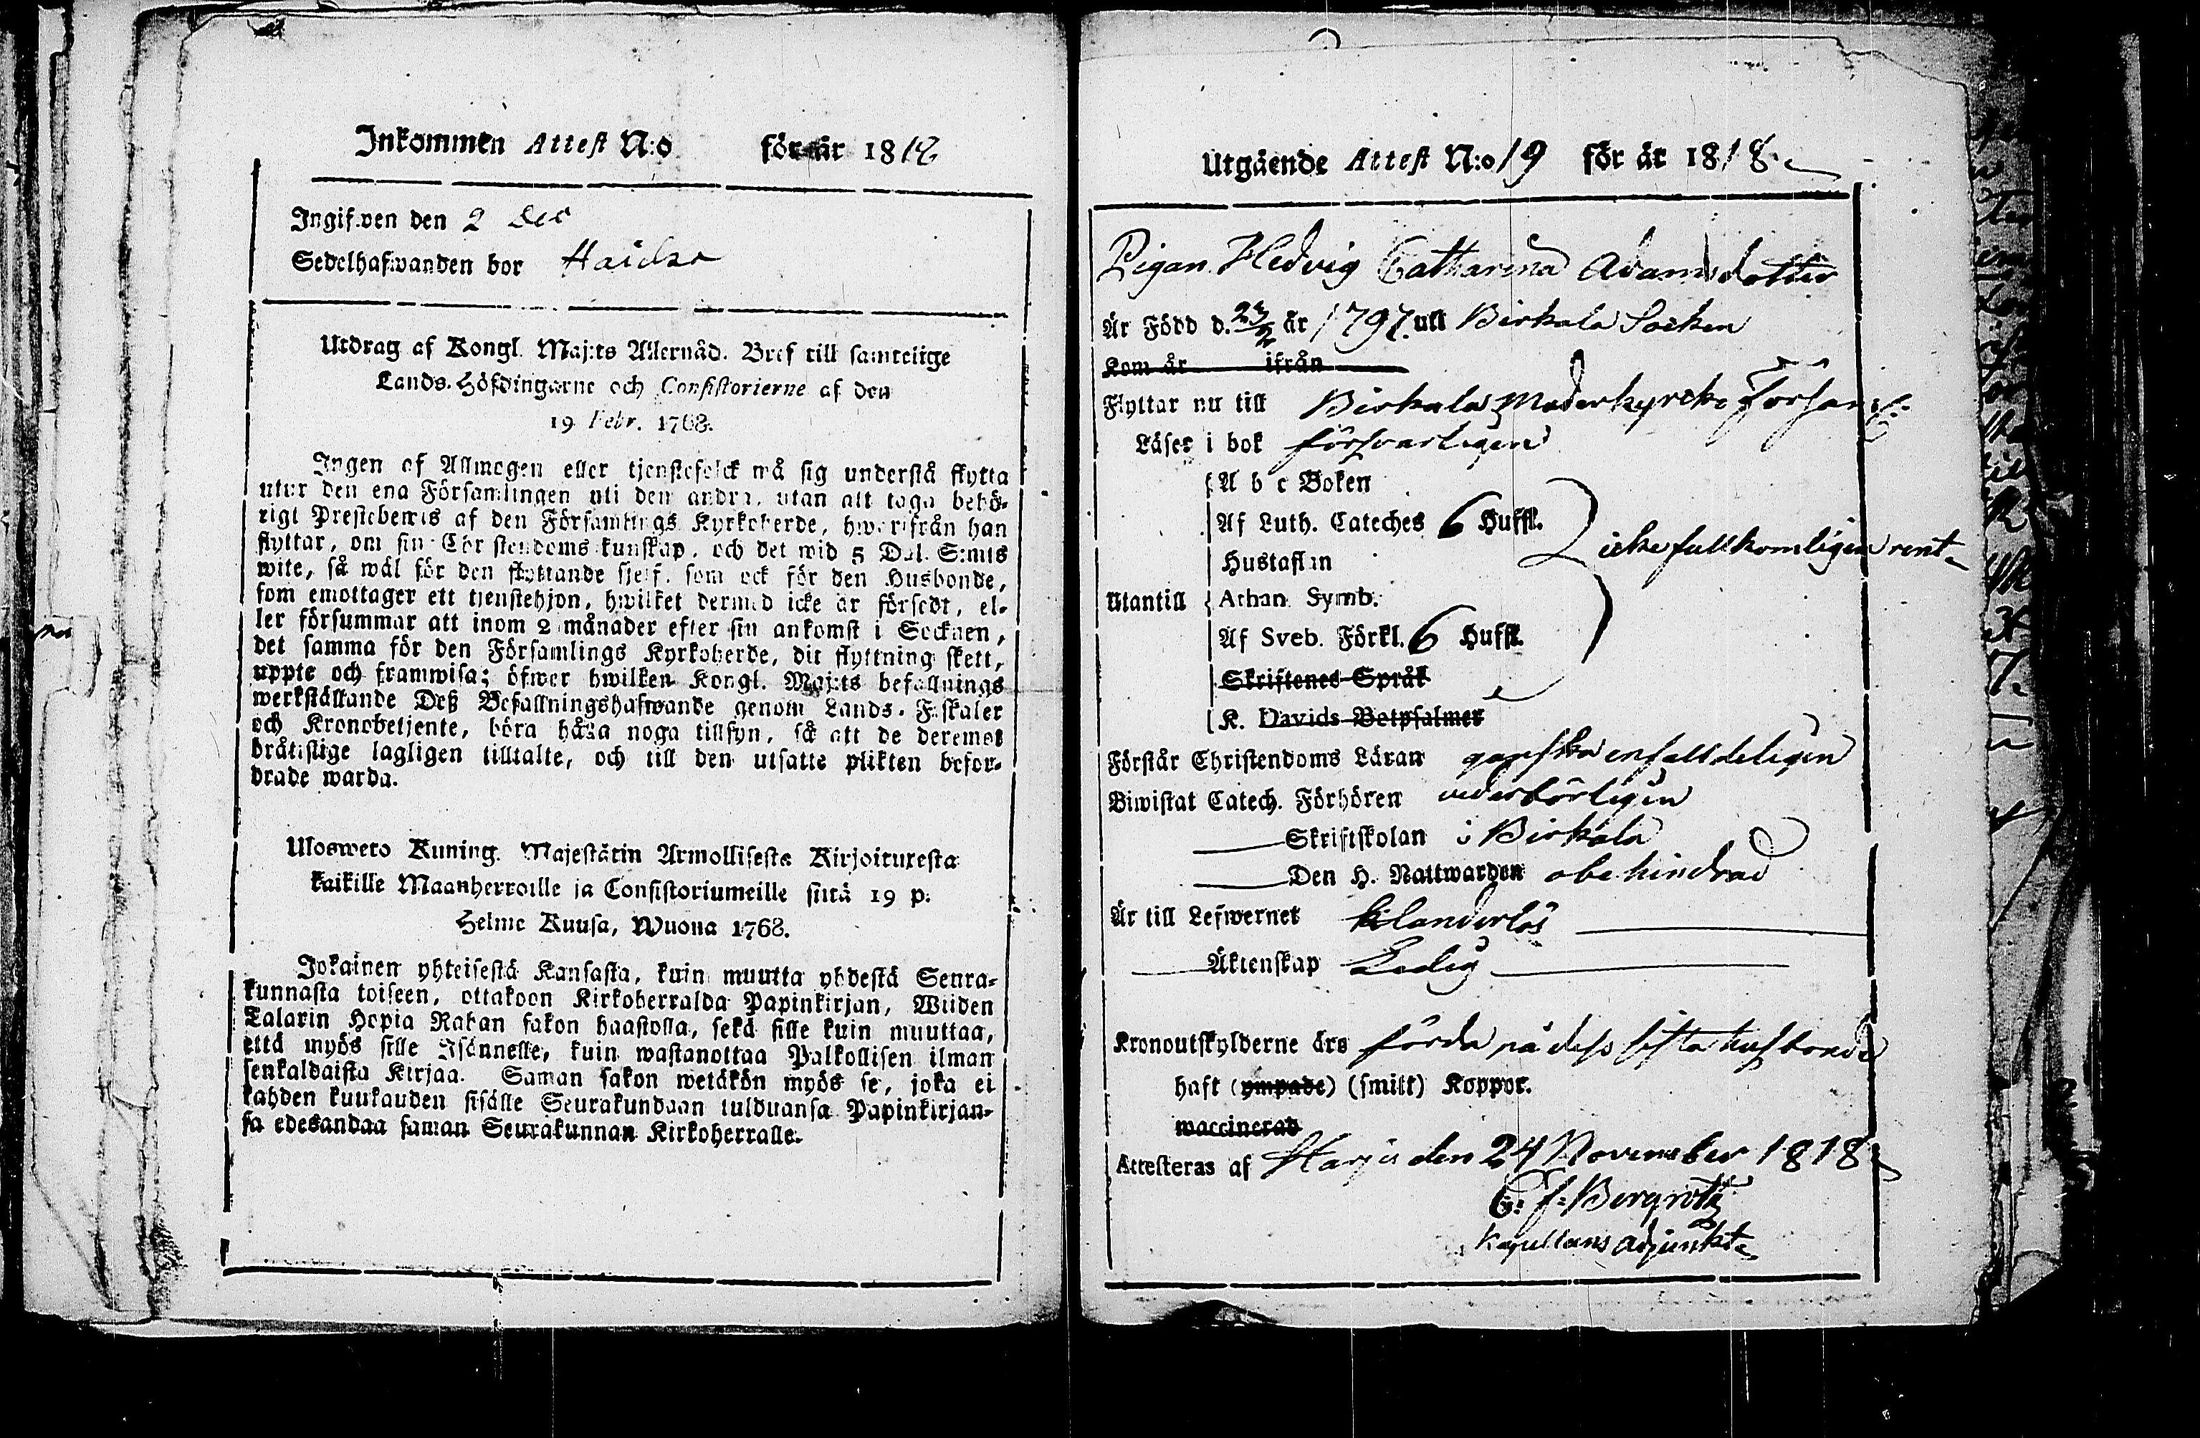 Inkommen Attest N:o för år 1818
Ingifwen den 2 Dec
Sedelhafwanden bor Haicka
Utdrag af Kongl. Maj:ts Allernåd. Bref till samtelige
Lands-Höfdingarne och Consistorierne af den
19 Febr. 1768.
Ingen af Allmogen eller tjenstefolck må sig understå flytta
utur den ena Församlingen uti den andra, utan att taga behö-
rigt Prestebewis af den Församlings Kyrkoherde, hwarifrån han
flyttar, om sin Christendoms kunskap, och det wid 5 Dal. S:mts
wite, så wäl för den flyttande sjelf, som ock för den Husbonde,
som emottager ett tjenstehjon, hwilket dermed icke är försedt, el-
ler försummar att inom 2 månader efter sin ankomst i Socknen,
det samma för den Församlings Kyrkoherde, dit flyttning skett,
uppte och framwisa; öfwer hwilken Kongl. Maj:ts befallnings
werkställande Deß Befallningshafwande genom Lands-Fiskaler
och Kronobetjente, böra hafwa noga tillsyn, så att de deremot
bråtislige lagligen tilltalte, och till den utsatte plikten befor-
drade warda.
Ulosweto Kuning. Majestätin Armollisesta Kirjoituxesta
kaikille Maanherroille ja Consistoriumeille siitä 19 p.
Helme Kuusa, Wuona 1768.
Jokainen yhteisestä Kansasta, kuin muutta yhdestä Seura-
kunnasta toiseen, ottakoon Kirkoherralda Papinkirjan, Wiiden
Talarin Hopia Rahan sakon haastolla, sekä sille kuin muuttaa,
että myös sille Isännelle, kuin wastanottaa Palkollisen ilman
senkaldaista Kirjaa. Saman sakon wetäkön myös se, joka ei
kahden kuukauden sisälle Seurakundaan tulduansa Papinkirjan-
sa edesandaa saman Seurakunnan Kirkoherralle.
Utgående Attest N:o 19 för år 1818.
Pigan Hedvig Catharina Adamsdotter
Är Född d. 23/2 år 1797. uti Birkala Socken
Kom år ifrån
Flyttar nu till Birkala Moderkyrcko Församl:
Läser i bok försvarligen
A b c Boken
Af Luth. Cateches 6 Hufst.
icke fullkomligen rent
Hustaflan
Utantill Athan. Symb.
Af Sveb. Förkl. 6 Hufst.
Skriftenes Språk
K. Davids Botpsalmer
Förstår Christendoms Läran ganska enfalldeligen
Biwistat Catech. Förhören vederbörligen
Skriftskolan i Birkala
Den H. Nattwarden obehindrad
Är till Lefwernet klanderlös
Äktenskap Ledig
Kronoutskylderne äro förda på dess sista husbonde
haft (ympade) (smitt) Koppor.
waccinerad
Attesteras af Harju den 24 November 1818
G: F: Bergroth
Kapellans adjunkt